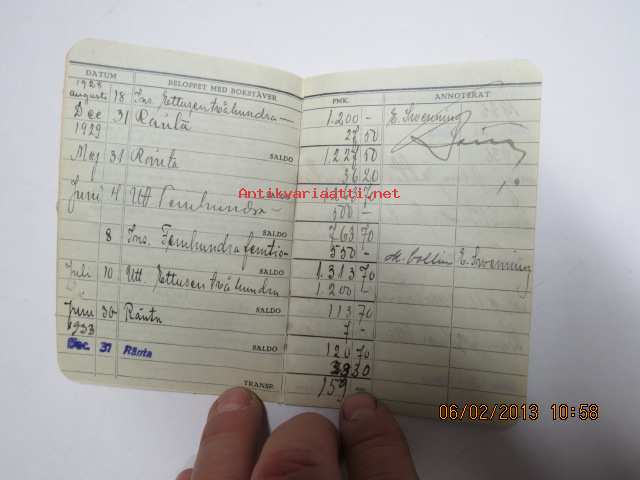 DATUM BELOPPET MED BOKSTÄVER FMK. ANNOTERAT
1928
augusti 18 Ins. Ettusentvåhundra— 1.200 – E. Swenning
Dec 31 Ränta 27 50
1929
SALDO 1.227 50
Maj 31 Ränta 36 20
Juni 4 Utt Femhundra— 500 –
SALDO 763 70
8 Ins. Femhundrafemtio– 550 – E. Swenning
SALDO 1.313 70
Juli 10 Utt. Ettusentvåhundra 1.200 –
SALDO 113 70
Juni 30 Ränta 7 –
1933
SALDO 120 70
Dec. 31 Ränta 38 30
TRANSP. 159 –
Antikvariaatti.net
06/02/2013 10:58